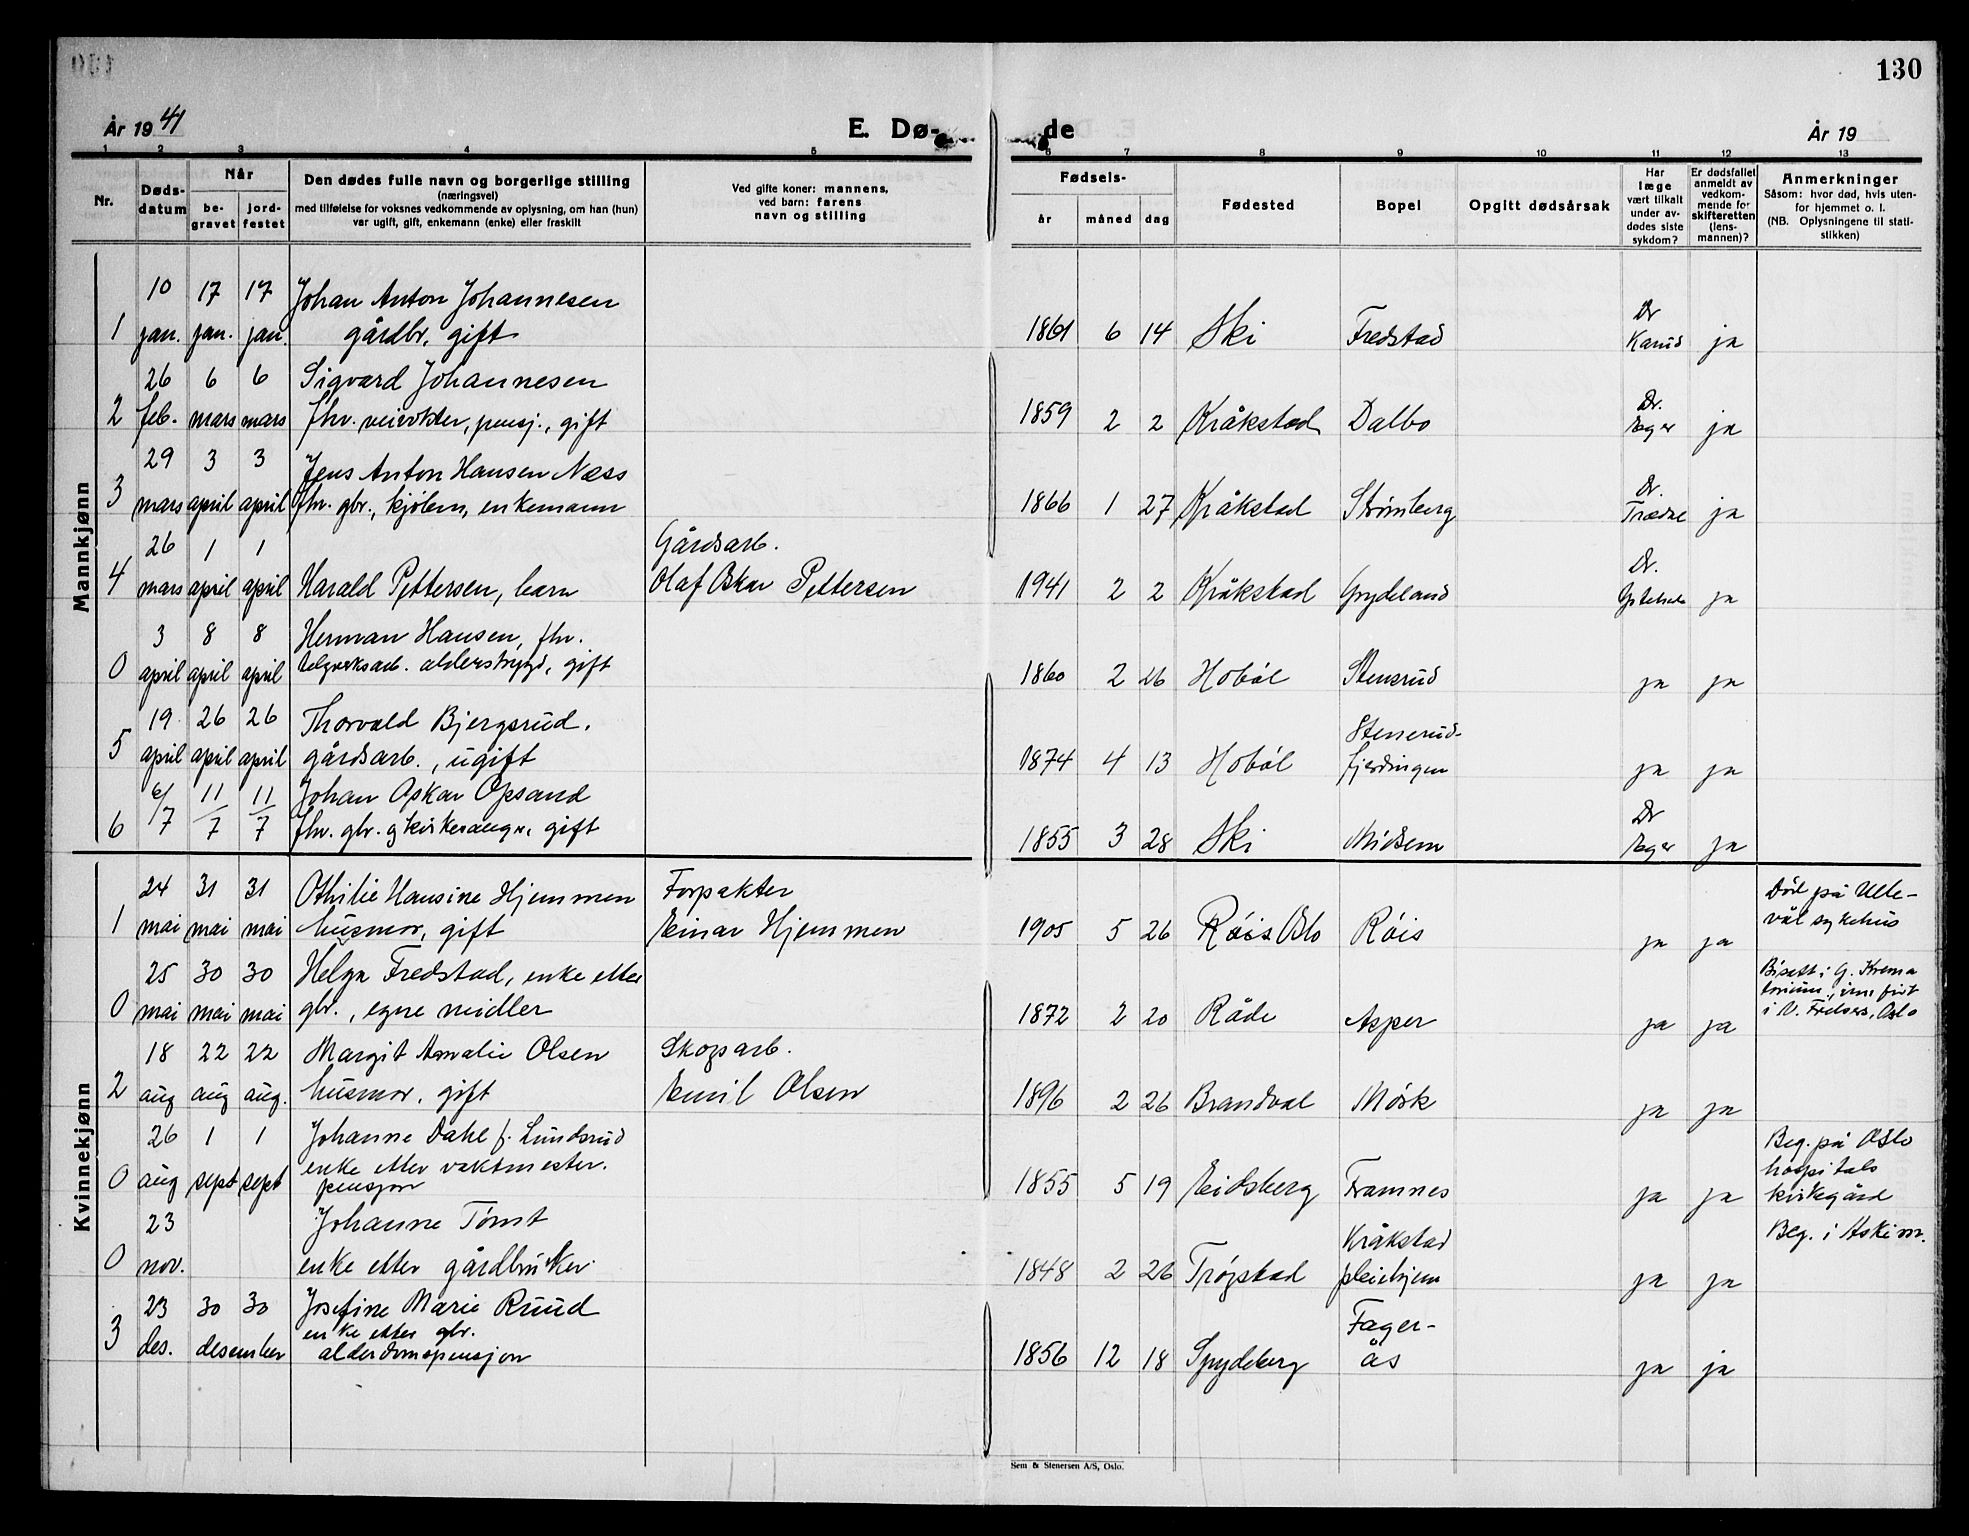 130
År 1941
E. Døde
År 19
1 2 3 4 5 6 7 8 9 10 11 12 13
Nr.
Døds-
datum
Når
be-
gravet
jord-
festet
Den dødes fulle navn og borgerlige stilling
(næringsvei)
med tilføielse for voksnes vedkommende av oplysning, om han (hun)
var ugift, gift, enkemann (enke) eller fraskilt
Ved gifte koner: mannens,
ved barn: farens
navn og stilling
Fødsels-
år måned dag
Fødested
Bopel
Opgitt dødsårsak
Har
læge
vært tilkalt
under av-
dødes siste
sykdom?
Er dødsfallet
anmeldt av
vedkom-
mende for
skifteretten
(lens-
mannen)?
Anmerkninger
Såsom: hvor død, hvis uten-
for hjemmet o. l.
(NB. Oplysningene til stati-
stikken)
Mannkjønn
10 17 17 Johan Anton Johannesen
1 jan. jan. jan. gårdbr, gift 1861 6 14 Ski Fredstad Dr Karud ja
26 6 6 Sigvard Johannesen
2 feb. mars mars fhv. veivokter, pensj., gift 1859 2 2 Kråkstad Dalbo Dr. ja
29 3 3 Jens Anton Hansen Næss
3 mars april april fhv. gbr., kjøbm, enkemann 1866 1 27 Kråkstad Strømberg Dr. ja
26 1 1 Gårdsarb.
4 mars april april Harald Pettersen, barn Olaf Oskar Pettersen 1941 2 2 Kråkstad Grydeland Dr. ja
3 8 8 Herman Hansen, fhv.
0 april april april alderstrygd, gift 1860 2 26 Hobøl Stensrud ja ja
19 26 26 Thorvald Bjergsrud. Stensrud-
5 april april april gårdsarb., ugift 1874 4 13 Hobøl fjerdingen ja ja
6/7 11/7 11/7 Johan Oskar Opsand
6 fhv. gbr. og kirkesanger, gift 1855 3 28 Ski Midsem Dr ja
Kvinnekjønn
24 31 31 Othilie Hansine Hjemmen Forpakter Død på Ulle-
1 mai mai mai husmor, gift Einar Hjemmen 1905 5 26 Røis Oslo Røis ja ja vål sykehus
25 30 30 Helga Fredstad, enke etter Bisatt i G. Krema
0 mai mai mai gbr., egne midler 1872 2 20 Råde Asper ja ja torium, i V. Frelsers, Oslo
18 22 22 Margit Amalie Olsen Skogsarb.
2 aug aug aug. husmor, gift Emil Olsen 1896 2 26 Brandval Mørk ja ja
26 1 1 Johanne Dahl f. Lundsrud Beg. på Oslo
0 aug sept sept enke etter vaktmester. 1855 5 19 Eidsberg Framnes ja ja hospitals
pensjon kirkegård
23 Johanne Tømt Kråkstad Beg. i Askim.
0 nov. enke etter gårdbruker 1848 2 26 Trøgstad pleiehjem ja ja
23 30 30 Josefine Marie Ruud Fager-
3 des. desember enke etter gbr. 1856 12 18 Spydeberg ås ja ja
alderdomspensjon
Sem & Stenersen A/S, Oslo.